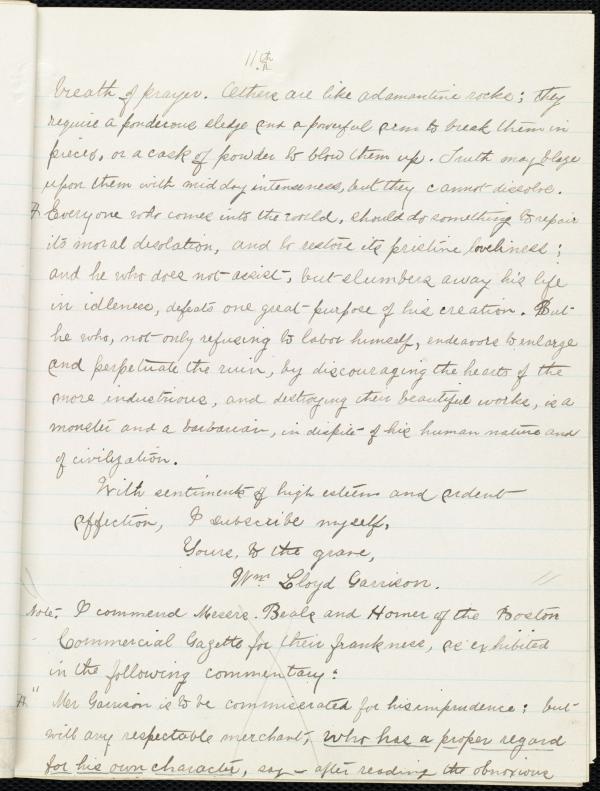 11th
breath of prayer. Others are like adamantine rocks; they
require a ponderous sledge and a powerful arm to break them in
pieces, or a cask of powder to blow them up. Truth may blaze
upon them with mid day intenseness, but they cannot dissolve.
Everyone who comes into the world, should do something to repair
its moral desolation, and to restore its pristine loveliness;
and he who does not assist, but slumbers away his life
in idleness, defeats one great purpose of his creation. But
he who, not only refusing to labor himself, endeavors to enlarge
and perpetuate the ruin, by discouraging the hearts of the
more industrious, and destroying their beautiful works, is a
monster and a barbarian, in despite of his human nature and
of civilization.
With sentiments of high esteem and ardent
affection, I subscribe myself,
Yours, to the grave,
Wm Lloyd Garrison.
Note. I commend Messrs. Beals and Homer of the Boston
Commercial Gazette for their frankness, as exhibited
in the following commentary:
" Mr Garrison is to be commiserated for his imprudence: but
will any respectable merchant, who has a proper regard
for his own character, say – after reading the obnoxious